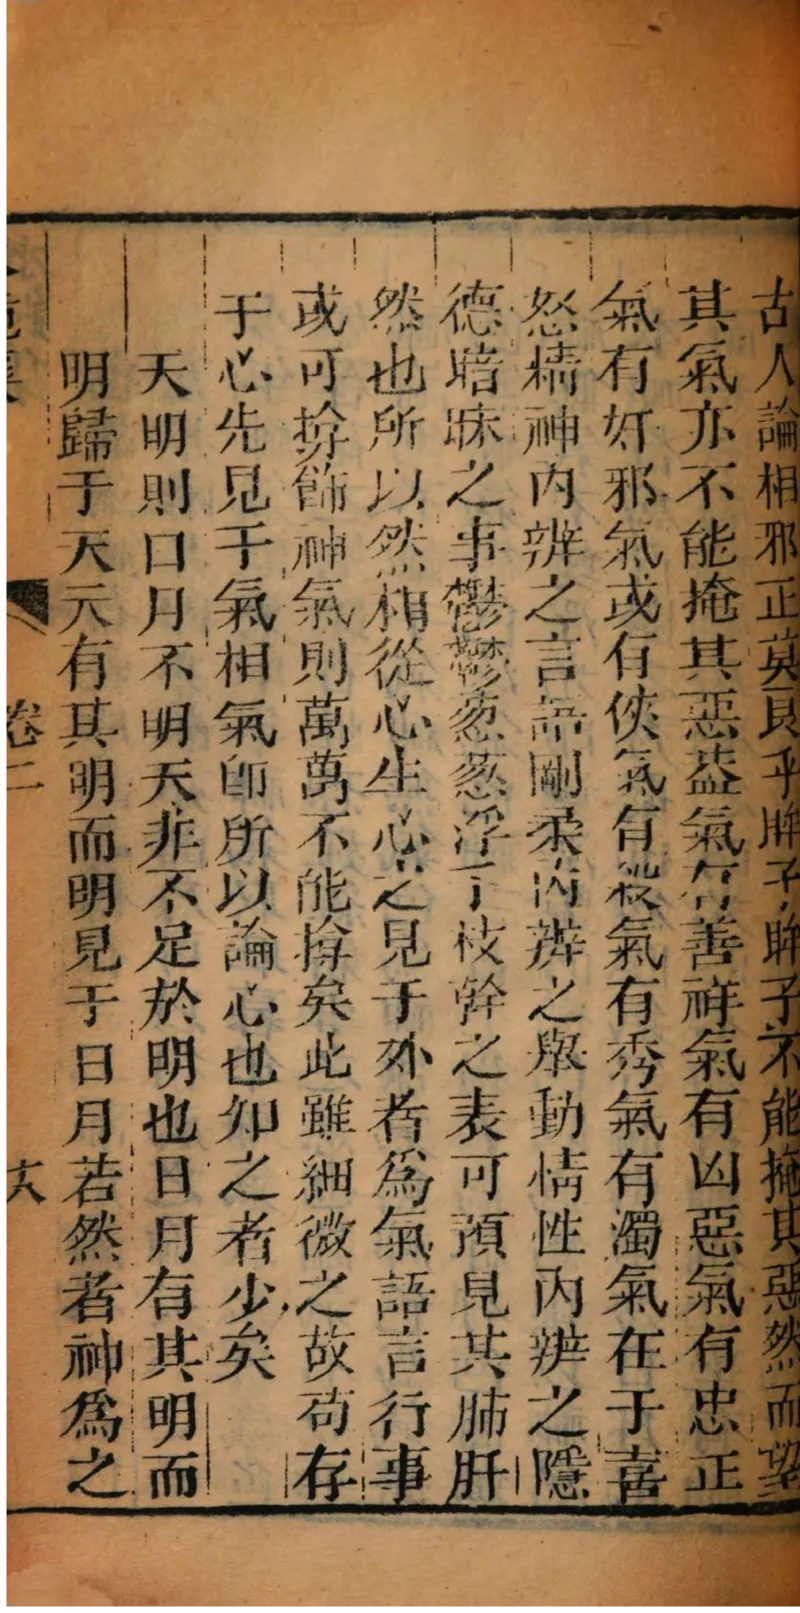 古人論相邪正莫良乎眸子眸子不能掩其惡然而望
其氣亦不能掩其惡葢氣有善祥氣有凶惡氣有忠正
氣有奸邪氣或有俠氣有殺氣有秀氣有濁氣在于喜
怒精神內辨之言語剛柔內辨之舉動情性內辨之隱
德暗昧之事鬱鬱葱葱浮于枝幹之表可預見其肺肝
然也所以然相從心生心之見于外者爲氣語言行事
或可揜飾神氣則萬萬不能揜矣此雖細微之故苟存
于心先見于氣相氣卽所以論心也知之者少矣
天明則日月不明天非不足於明也日月有其明而
明歸于天元有其明而明見于日月若然者神爲之
卷二
十八